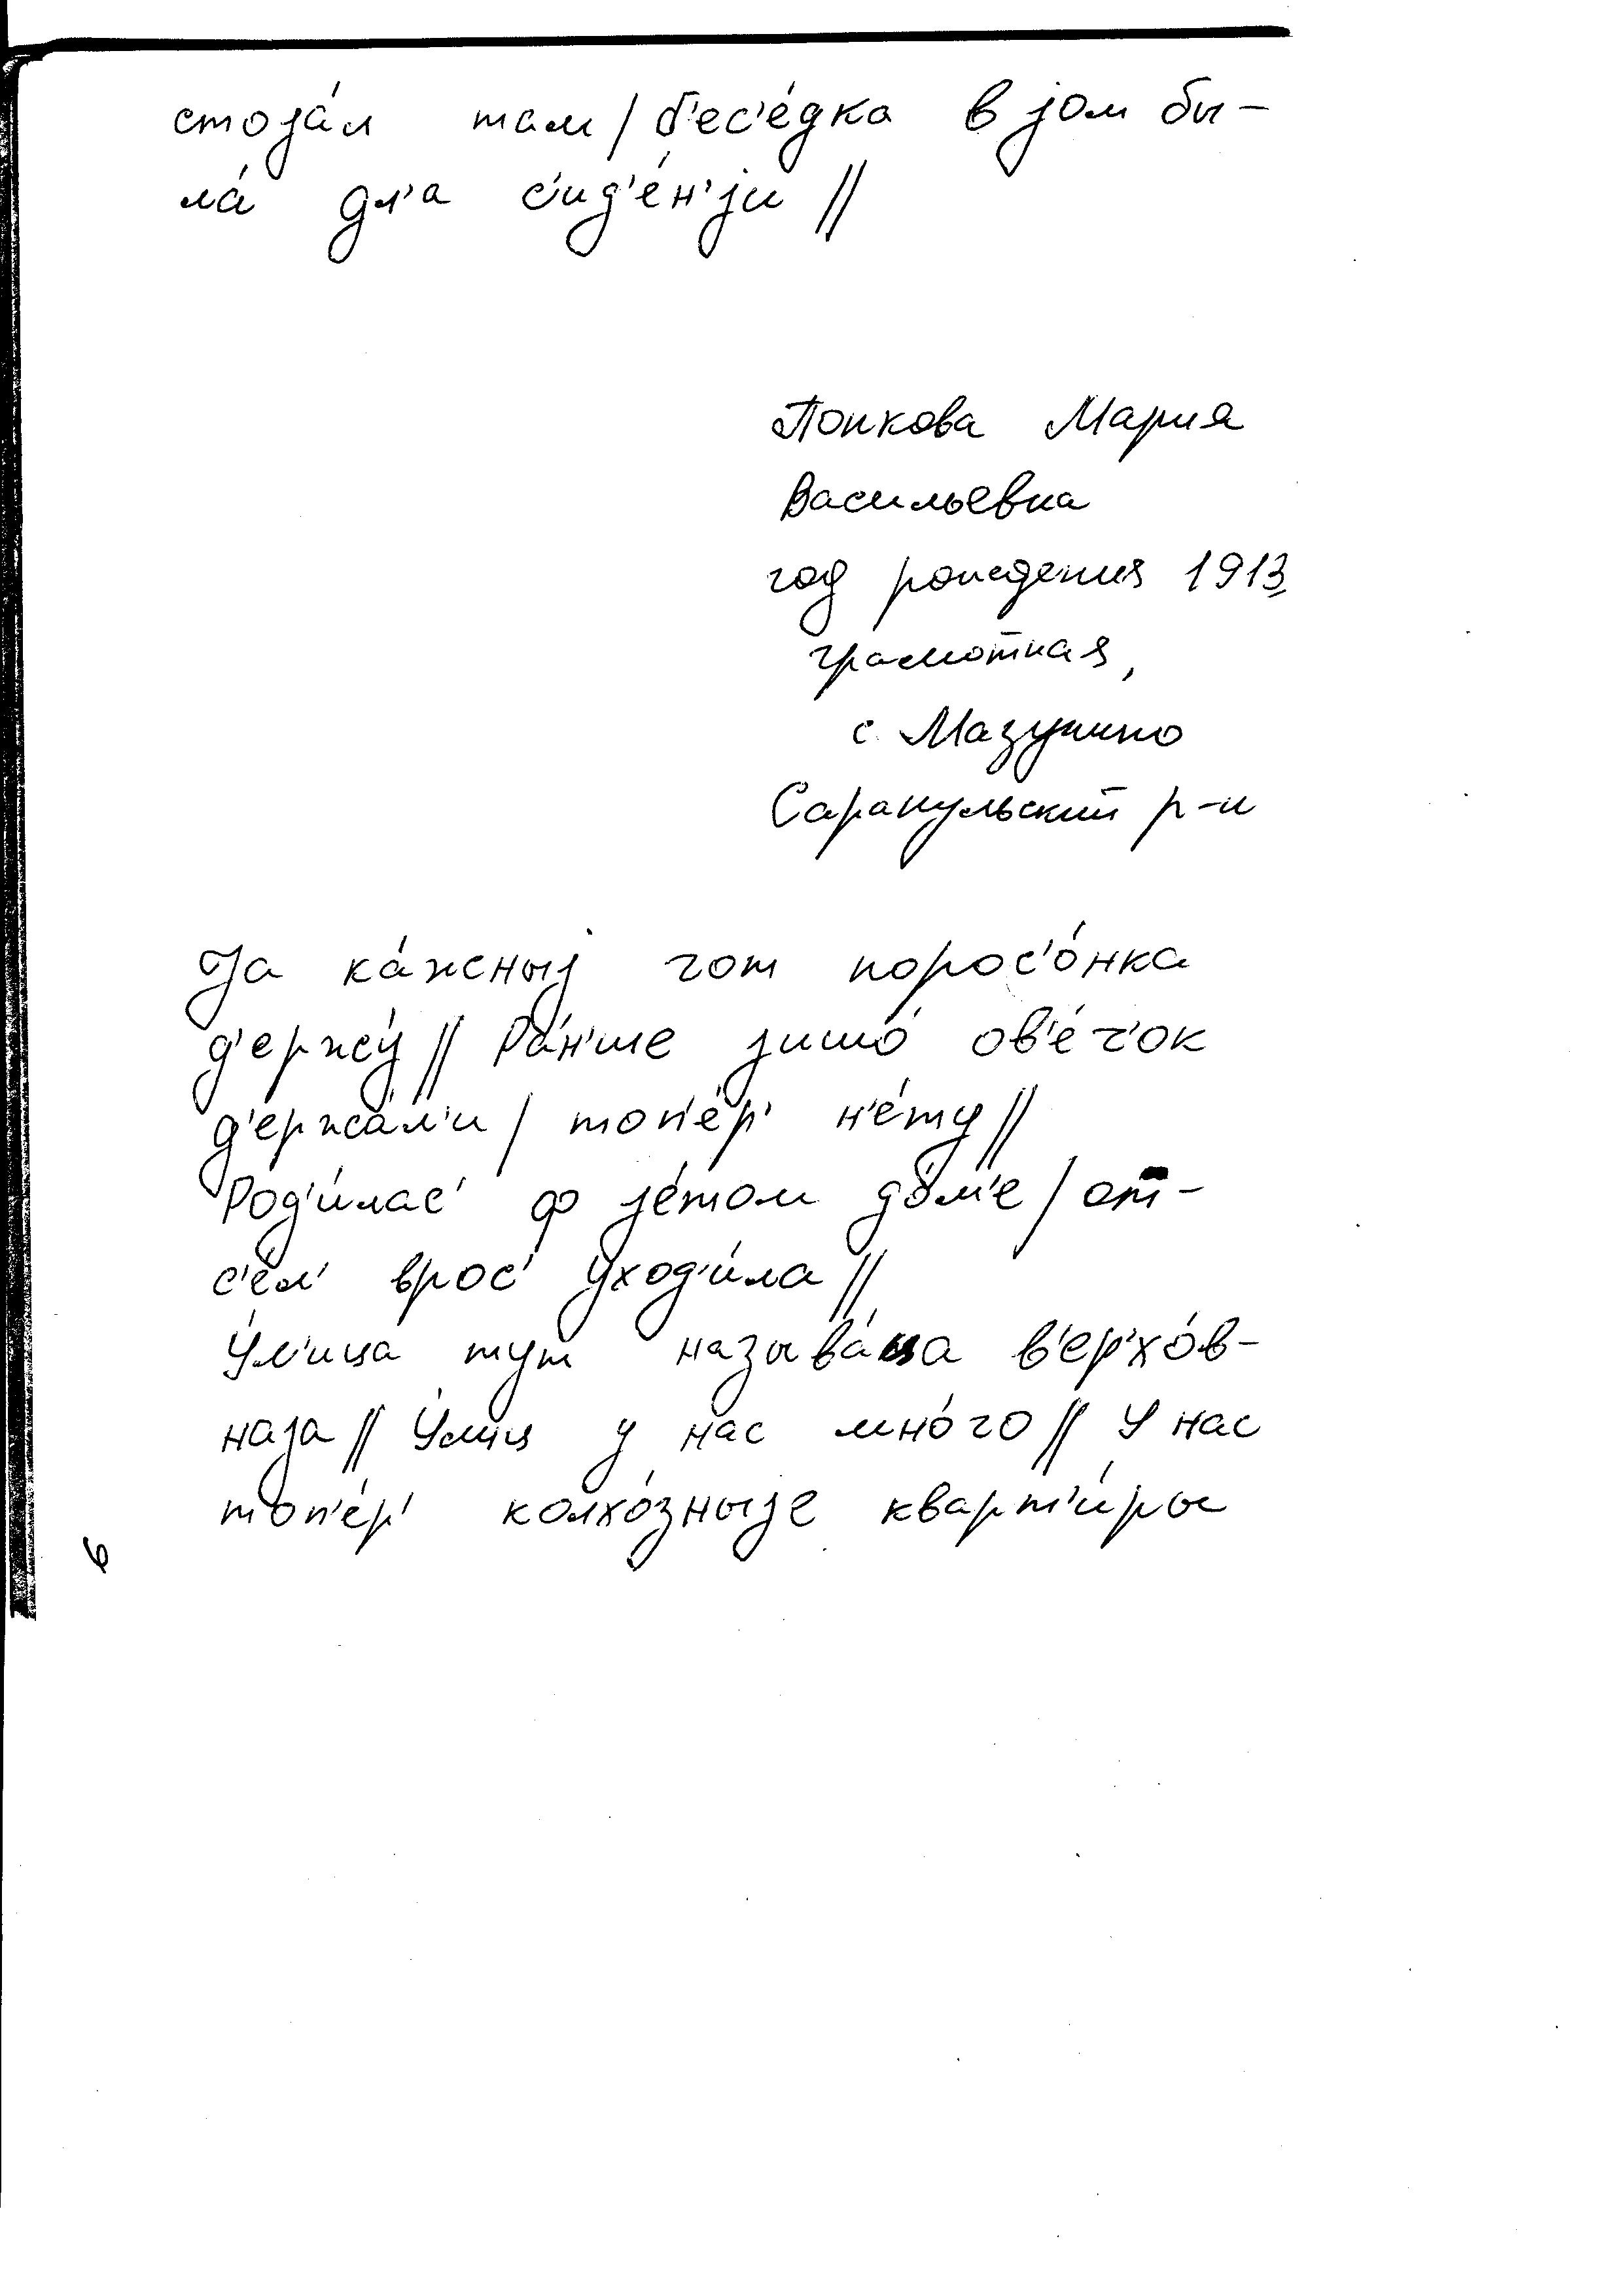 стоjа́л там / б'ес'е́дка в jом бы-
ла́ дл'а с'ид'е́н'jи //
Попкова Мария
Васильевна
год рождения 1913
грамотная,
с. Мазунино
Сарапульский р-н
Jа ка́жныj гот порос'о́нка
д'ержу́ // Ра́н'ше jишо́ ов'е́ч'ок
д'ержа́л'и / топ'е́р' н'е́ту //
Род'и́лас' ф jе́том до́м'е / от-
с'е́л' врос' уход'и́ла //
У́л'ица тут называ́ца в'ер'хо́в-
наjа // У́лиц у нас мно́го // У нас
топ'е́р' колхо́зныjе кварт'и́ры
6